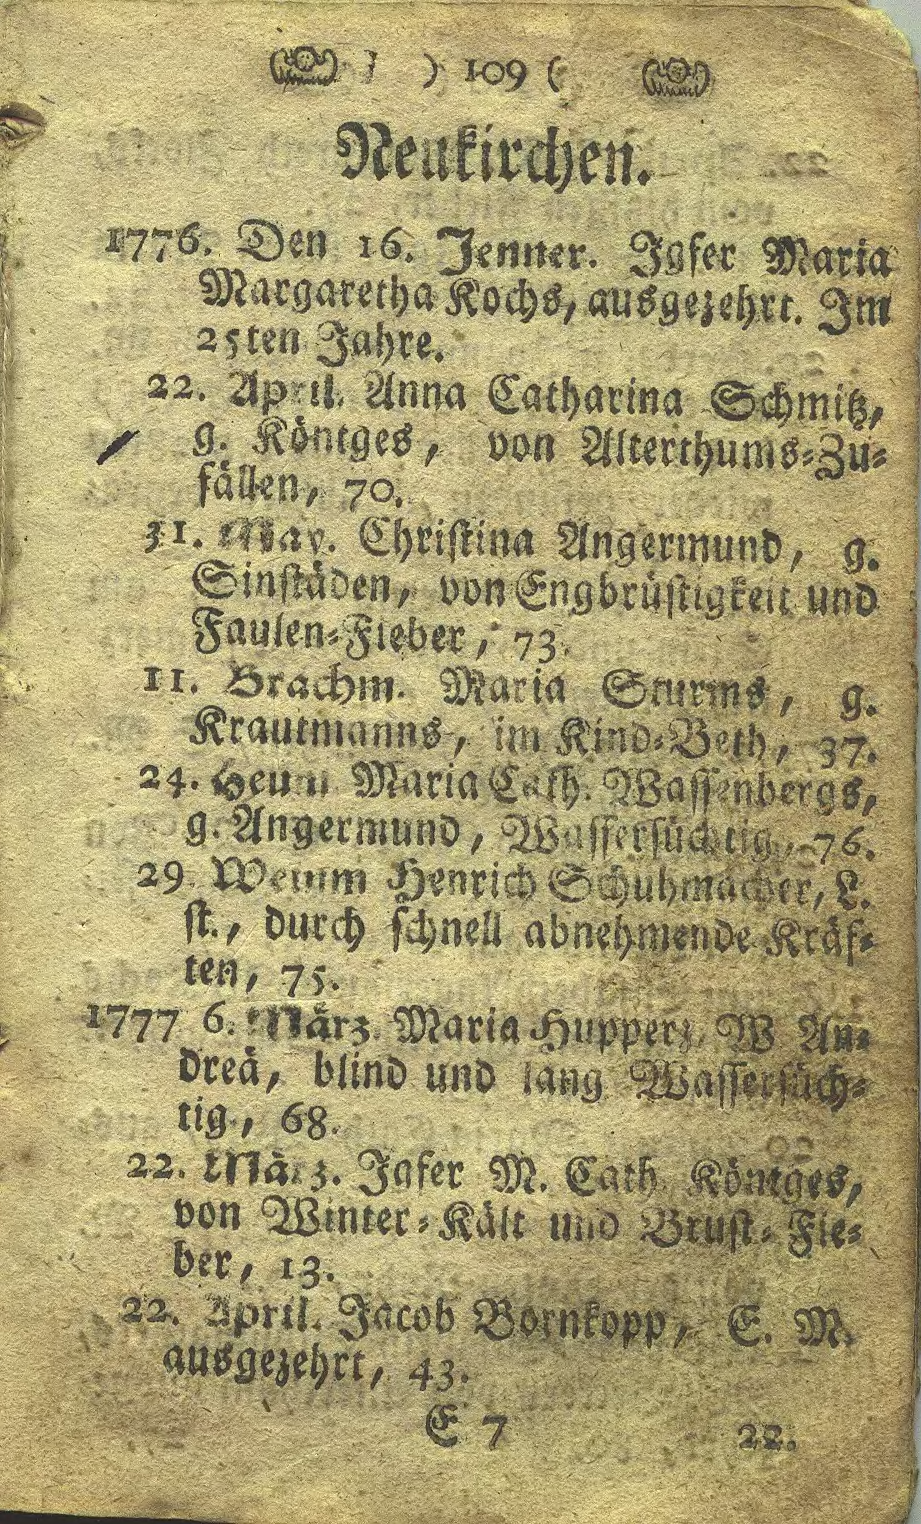 ) 109 (
Neukirchen.
1776. Den 16. Jenner. Jgfer Maria
Margaretha Kochs, ausgezehrt. Im
25ten Jahre.
22. April. Anna Catharina Schmitz,
g. Köntges, von Alterthums-Zu-
fällen, 70.
31. May. Christina Angermund, g.
Sinstäden, von Engbrüstigkeit und
Faulen-Fieber, 73.
11. Brachm. Maria Sturms, g.
Krautmanns, im Kind-Beth, 37.
24. Heum Maria Cath. Wassenbergs,
g. Angermund, Wassersüchtig, 76.
29. Weinm Henrich Schuhmacher, L.
st., durch schnell abnehmende Kräf-
ten, 75.
1777 6. März. Maria Hupperz, W An-
dreä, blind und lang Wassersüch-
tig, 68.
22. März. Jgfer M. Cath. Köntges,
von Winter-Kält und Brust-Fie-
ber, 13.
22. April. Jacob Bornkopp, E. M.
ausgezehrt, 43.
E 7 22.